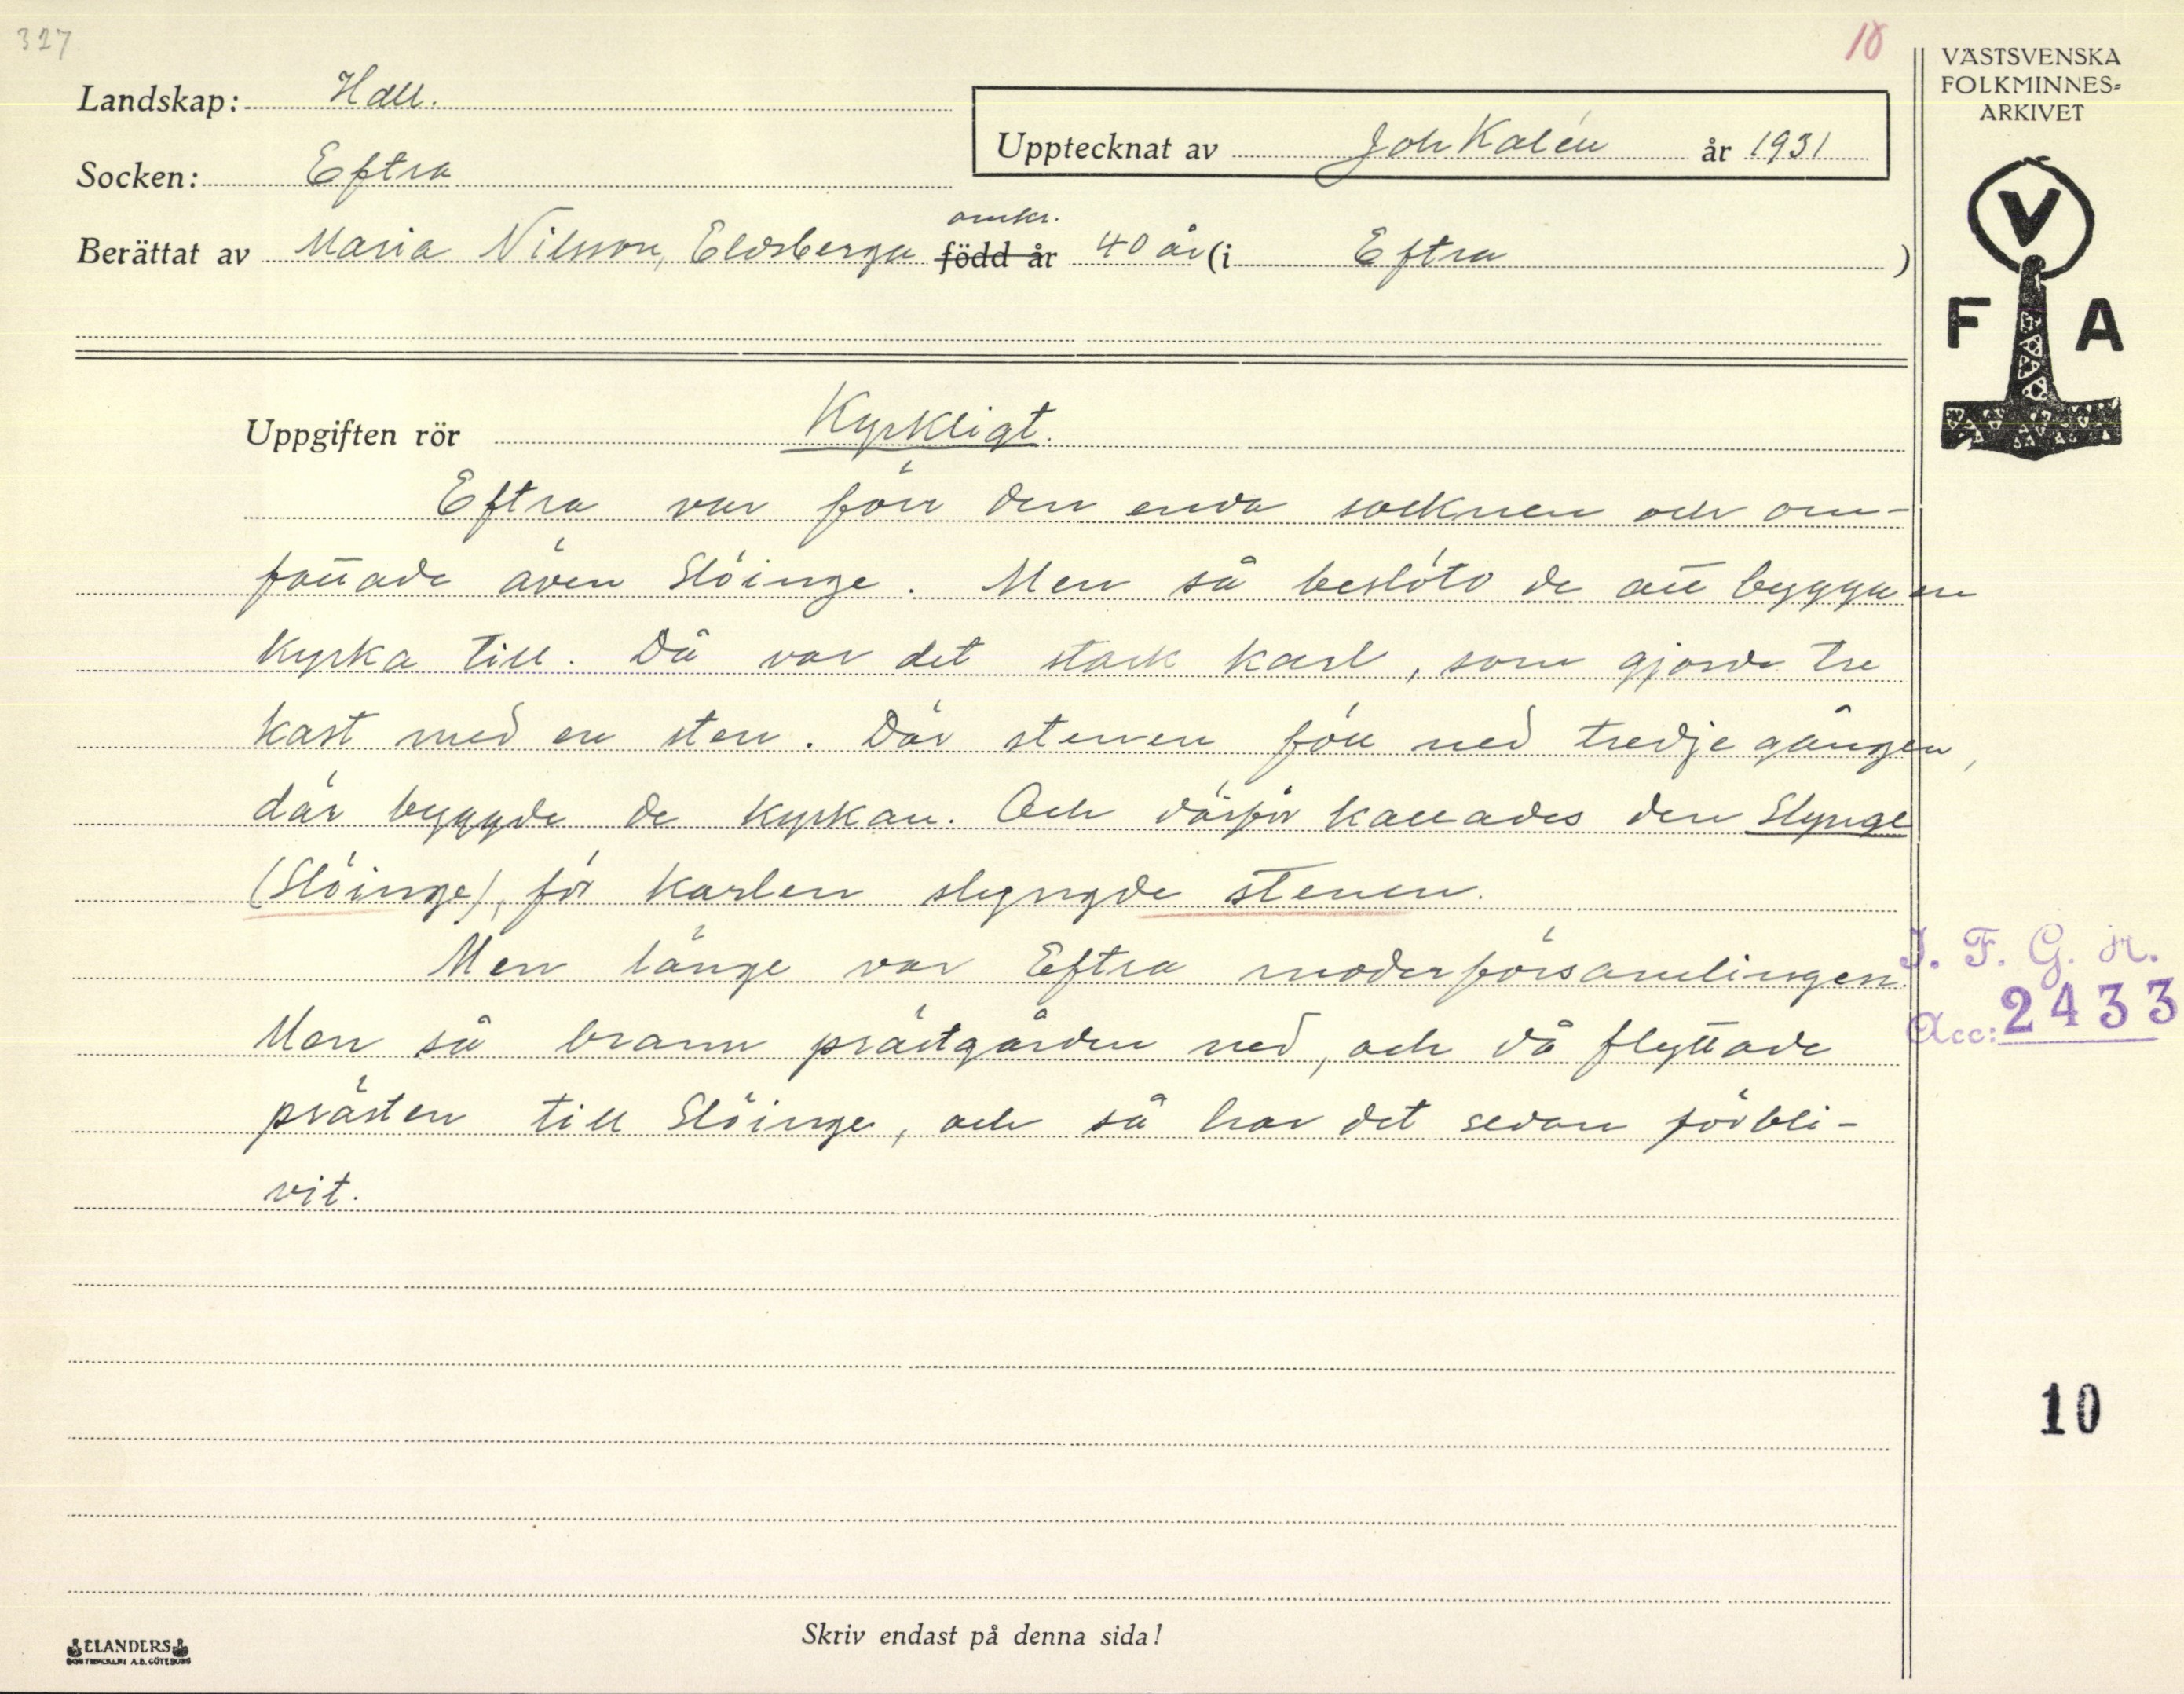 327
10
Landskap: Hall.
Socken: Eftra
Upptecknat av Joh Kalén år 1931
omkr.
Berättat av Maria Nilsson, Eldsberga född år 40 år (i Eftra )
VÄSTSVENSKA
FOLKMINNES-
ARKIVET
V
F A
Uppgiften rör Kyrkligt.
Eftra var förr den enda socknen och om-
fattade även Slöinge. Men så beslöto de att bygga en
kyrka till. Då var det stark karl, som gjorde tre
kast med en sten. Där stenen föll ned tredje gången,
där byggde de kyrkan. Och därför kallades den Slynge
(Slöinge), för karlen slyngde stenen.
Men länge var Eftra moderförsamlingen.
Men så brann prästgården ned, och då flyttade
prästen till Slöinge, och så har det sedan förbli-
vit.
I. F. G. H.
Acc: 2433
10
Skriv endast på denna sida!
ELANDERS
BOKTRYCKERI A.B. GÖTEBORG